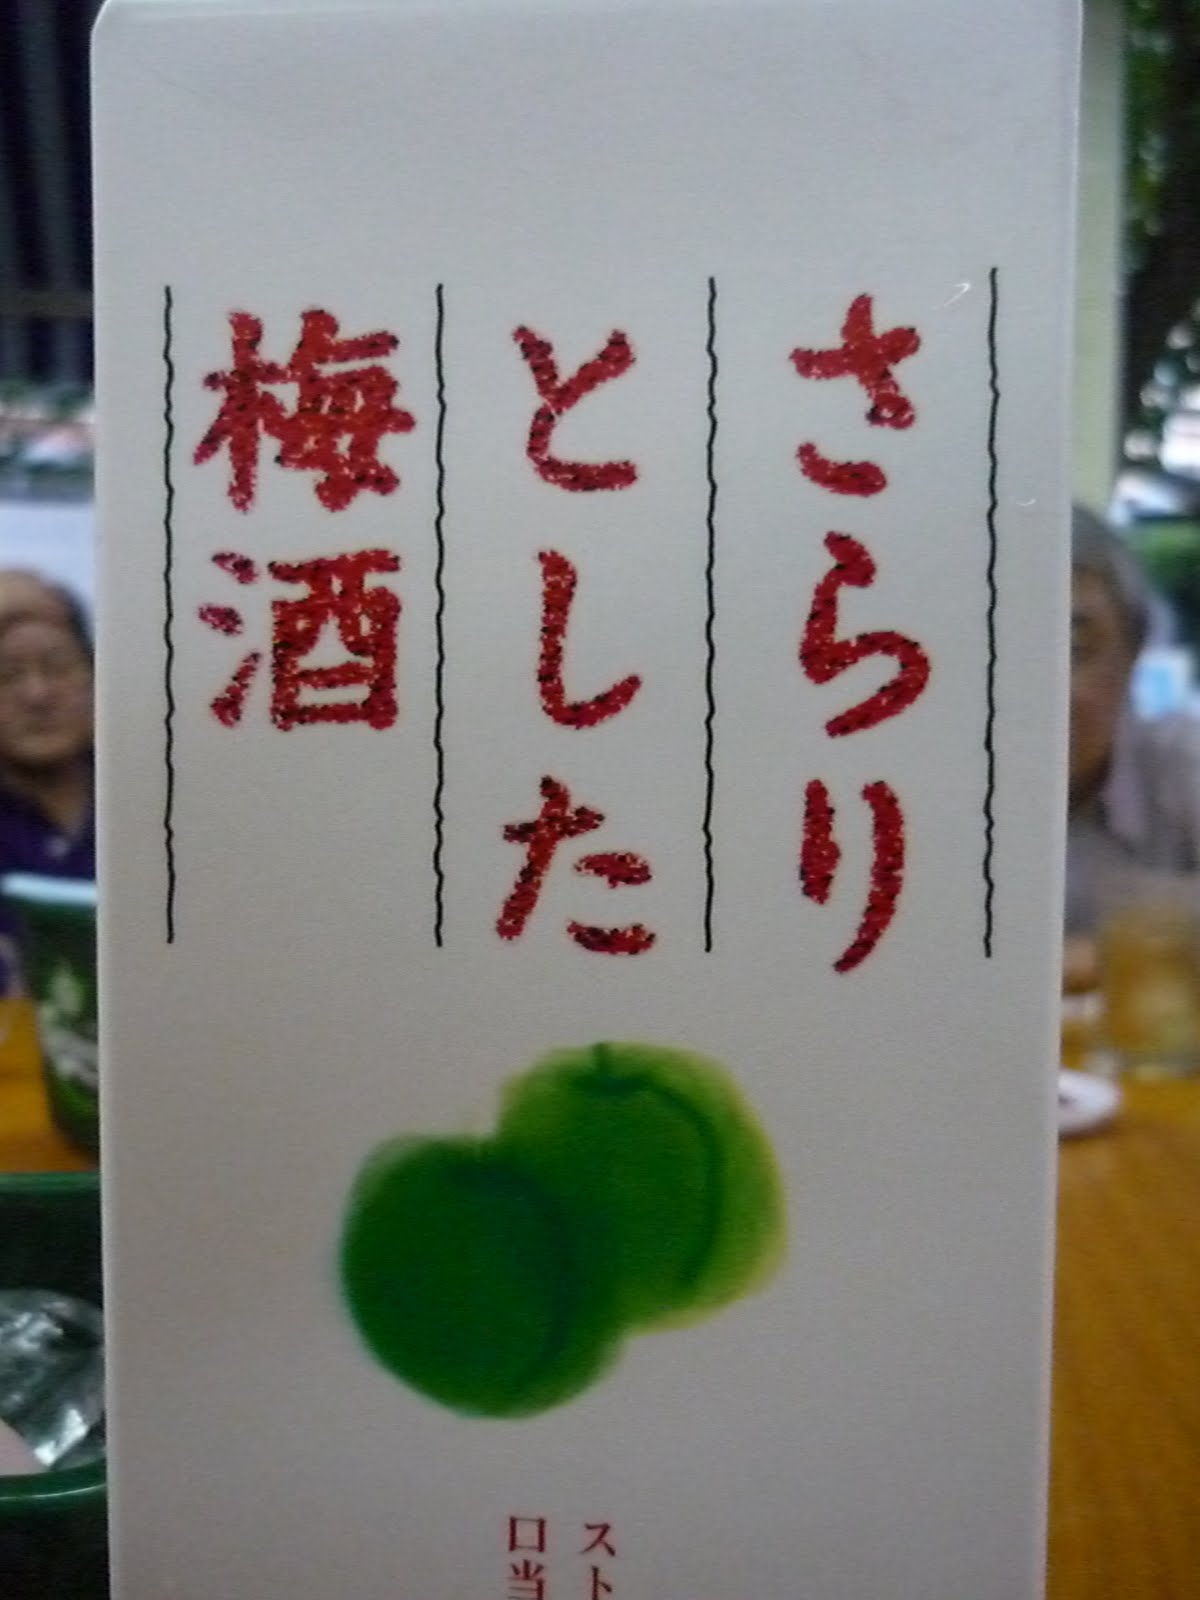 さらり
とした
梅酒
スト
口当